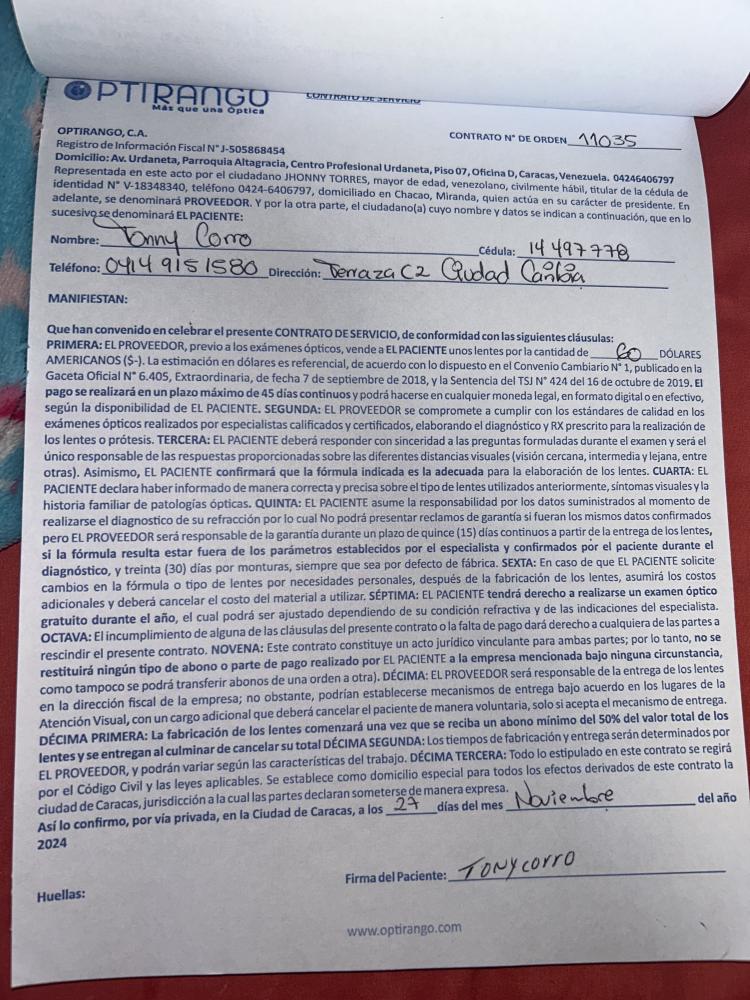 OPTIRANGO
Más que una Óptica
CONTRATO DE SERVICIO
OPTIRANGO, C.A.
CONTRATO N° DE ORDEN 11035
Registro de Información Fiscal N° J-505868454
Domicilio: Av. Urdaneta, Parroquia Altagracia, Centro Profesional Urdaneta, Piso 07, Oficina D, Caracas, Venezuela. 04246406797
Representada en este acto por el ciudadano JHONNY TORRES, mayor de edad, venezolano, civilmente hábil, titular de la cédula de
identidad N° V-18348340, teléfono 0424-6406797, domiciliado en Chacao, Miranda, quien actúa en su carácter de presidente. En
adelante, se denominará PROVEEDOR. Y por la otra parte, el ciudadano(a) cuyo nombre y datos se indican a continuación, que en lo
sucesivo se denominará EL PACIENTE:
Nombre: Tonny Corro Cédula: 14 497 778
Teléfono: 0414 915 1580 Dirección: Terraza C2 Ciudad
MANIFIESTAN:
Que han convenido en celebrar el presente CONTRATO DE SERVICIO, de conformidad con las siguientes cláusulas:
PRIMERA: EL PROVEEDOR, previo a los exámenes ópticos, vende a EL PACIENTE unos lentes por la cantidad de 60 DÓLARES
AMERICANOS ($-). La estimación en dólares es referencial, de acuerdo con lo dispuesto en el Convenio Cambiario N° 1, publicado en la
Gaceta Oficial N° 6.405, Extraordinaria, de fecha 7 de septiembre de 2018, y la Sentencia del TSJ N° 424 del 16 de octubre de 2019. El
pago se realizará en un plazo máximo de 45 días continuos y podrá hacerse en cualquier moneda legal, en formato digital o en efectivo,
según la disponibilidad de EL PACIENTE. SEGUNDA: EL PROVEEDOR se compromete a cumplir con los estándares de calidad en los
exámenes ópticos realizados por especialistas calificados y certificados, elaborando el diagnóstico y RX prescrito para la realización de
los lentes o prótesis. TERCERA: EL PACIENTE deberá responder con sinceridad a las preguntas formuladas durante el examen y será el
único responsable de las respuestas proporcionadas sobre las diferentes distancias visuales (visión cercana, intermedia y lejana, entre
otras). Asimismo, EL PACIENTE confirmará que la fórmula indicada es la adecuada para la elaboración de los lentes. CUARTA: EL
PACIENTE declara haber informado de manera correcta y precisa sobre el tipo de lentes utilizados anteriormente, síntomas visuales y la
historia familiar de patologías ópticas. QUINTA: EL PACIENTE asume la responsabilidad por los datos suministrados al momento de
realizarse el diagnostico de su refracción por lo cual No podrá presentar reclamos de garantía si fueran los mismos datos confirmados
pero EL PROVEEDOR será responsable de la garantía durante un plazo de quince (15) días continuos a partir de la entrega de los lentes,
si la fórmula resulta estar fuera de los parámetros establecidos por el especialista y confirmados por el paciente durante el
diagnóstico, y treinta (30) días por monturas, siempre que sea por defecto de fábrica. SEXTA: En caso de que EL PACIENTE solicite
cambios en la fórmula o tipo de lentes por necesidades personales, después de la fabricación de los lentes, asumirá los costos
adicionales y deberá cancelar el costo del material a utilizar. SÉPTIMA: EL PACIENTE tendrá derecho a realizarse un examen óptico
gratuito durante el año, el cual podrá ser ajustado dependiendo de su condición refractiva y de las indicaciones del especialista.
OCTAVA: El incumplimiento de alguna de las cláusulas del presente contrato o la falta de pago dará derecho a cualquiera de las partes a
rescindir el presente contrato. NOVENA: Este contrato constituye un acto jurídico vinculante para ambas partes; por lo tanto, no se
restituirá ningún tipo de abono o parte de pago realizado por EL PACIENTE a la empresa mencionada bajo ninguna circunstancia,
como tampoco se podrá transferir abonos de una orden a otra). DÉCIMA: EL PROVEEDOR será responsable de la entrega de los lentes
en la dirección fiscal de la empresa; no obstante, podrían establecerse mecanismos de entrega bajo acuerdo en los lugares de la
Atención Visual, con un cargo adicional que deberá cancelar el paciente de manera voluntaria, solo si acepta el mecanismo de entrega.
DÉCIMA PRIMERA: La fabricación de los lentes comenzará una vez que se reciba un abono mínimo del 50% del valor total de los
lentes y se entregan al culminar de cancelar su total DÉCIMA SEGUNDA: Los tiempos de fabricación y entrega serán determinados por
EL PROVEEDOR, y podrán variar según las características del trabajo. DÉCIMA TERCERA: Todo lo estipulado en este contrato se regirá
por el Código Civil y las leyes aplicables. Se establece como domicilio especial para todos los efectos derivados de este contrato la
ciudad de Caracas, jurisdicción a la cual las partes declaran someterse de manera expresa.
Así lo confirmo, por vía privada, en la Ciudad de Caracas, a los 27 días del mes Noviembre del año
2024
Firma del Paciente: TONY CORRO
Huellas:
www.optirango.com